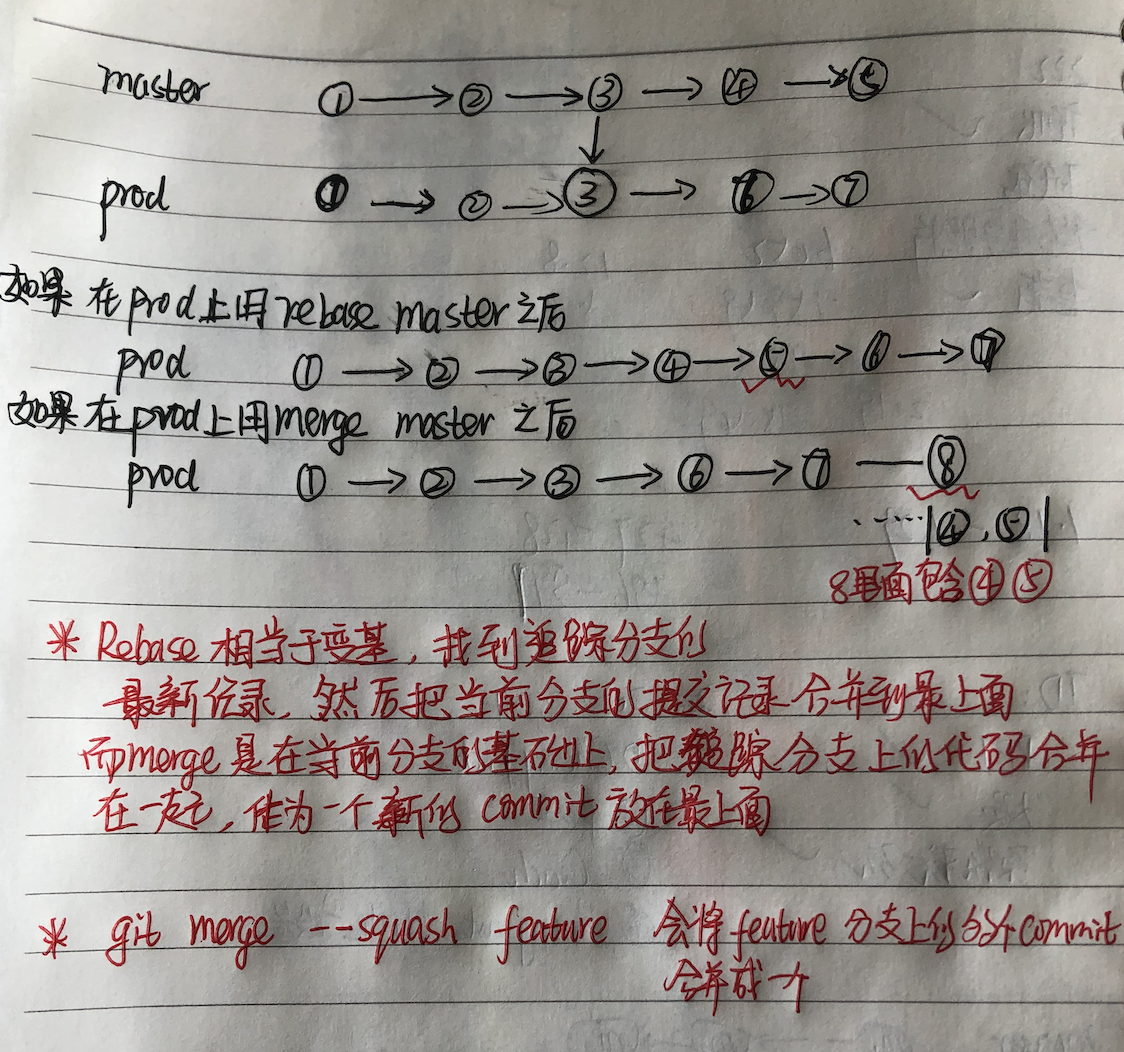 master ① → ② → ③ → ④ → ⑤
↓
prod ① → ② → ③ → ⑥ → ⑦
如果 在prod上用rebase master之后
prod ① → ② → ③ → ④ → ⑤ → ⑥ → ⑦
如果在prod上用merge master 之后
prod ① → ② → ③ → ⑥ → ⑦ — ⑧
······|④,⑤|
8里面包含④⑤
* Rebase 相当于变基,找到追踪分支的
最新记录,然后把当前分支的提交记录合并到最上面
而merge是在当前分支的基础上,把追踪分支上的代码合并
在一起,作为一个新的 commit 放在最上面
* git merge --squash feature 会将feature 分支上的多个commit
合并成一个